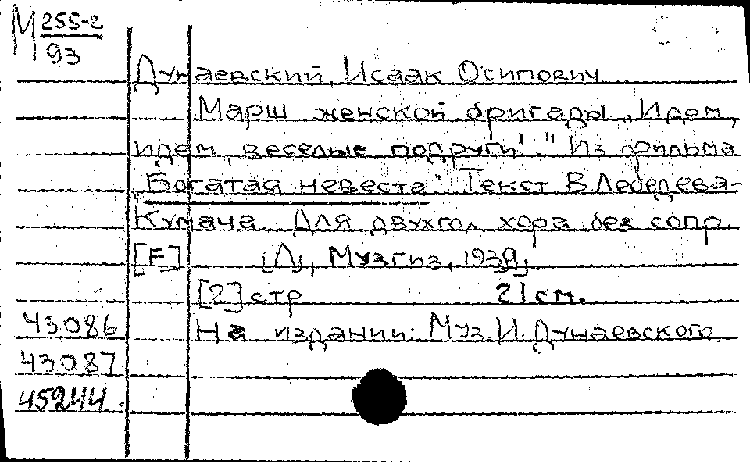 М 255-2
93
Дунаевский, Исаак Осипович
Марш женской бригады „Идем,
идем, веселые подруги!." Из фильма
"Богатая невеста" Текст В. Лебедева-
Кумача. Для двухгол. хора без сопр.
[F] [Л], Музгиз, 1939.
[2] стр 21 см.
43086 На издании: Муз. И. Дунаевского
43087
45244.